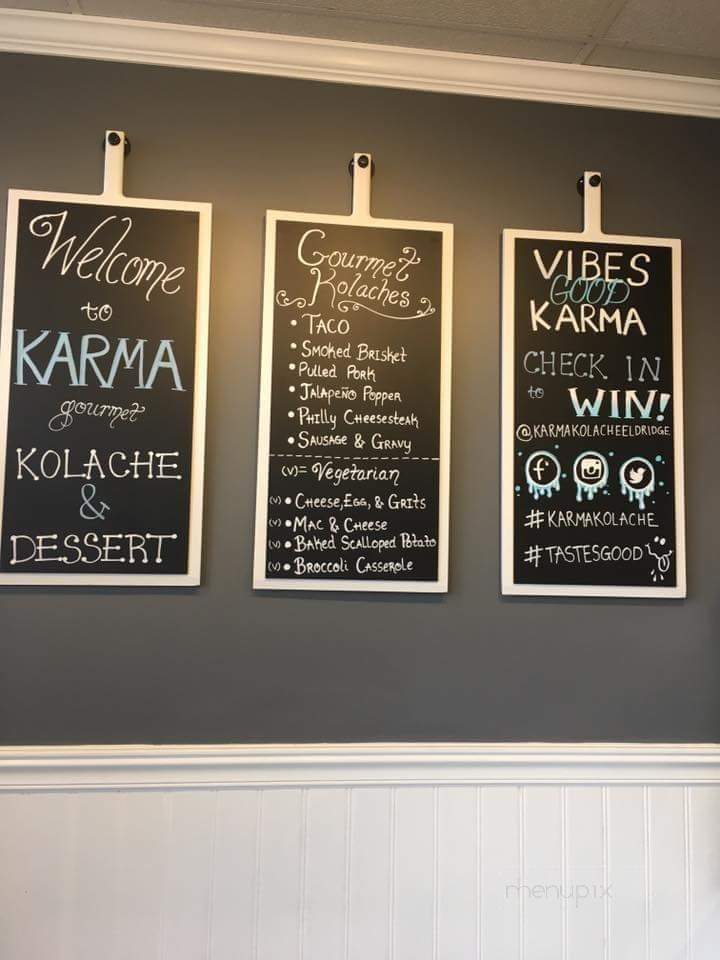 Welcome
to
KARMA
gourmet
KOLACHE
&
DESSERT
Gourmet
Kolaches
• TACO
• SMOKED BRISKET
• PULLED PORK
• JALAPEÑO POPPER
• PHILLY CHEESESTEAK
• SAUSAGE & GRAVY
(V)= Vegetarian
(V) • CHEESE, EGG, & GRITS
(V) • MAC & CHEESE
(V) • BAKED SCALLOPED POTATO
(V) • BROCCOLI CASSEROLE
VIBES
GOOD
KARMA
CHECK IN
to WIN!
@KARMAKOLACHEELDRIDGE
#KARMAKOLACHE
#TASTESGOOD
menupix